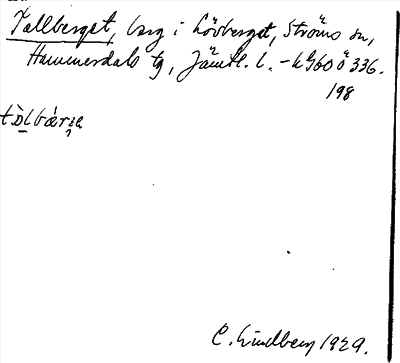 Tallberget, berg i Lövberget, Ströms sn,
Hammerdals tg, Jämtl. l. – kG60Ö336.
198
C. Lindberg 1929.